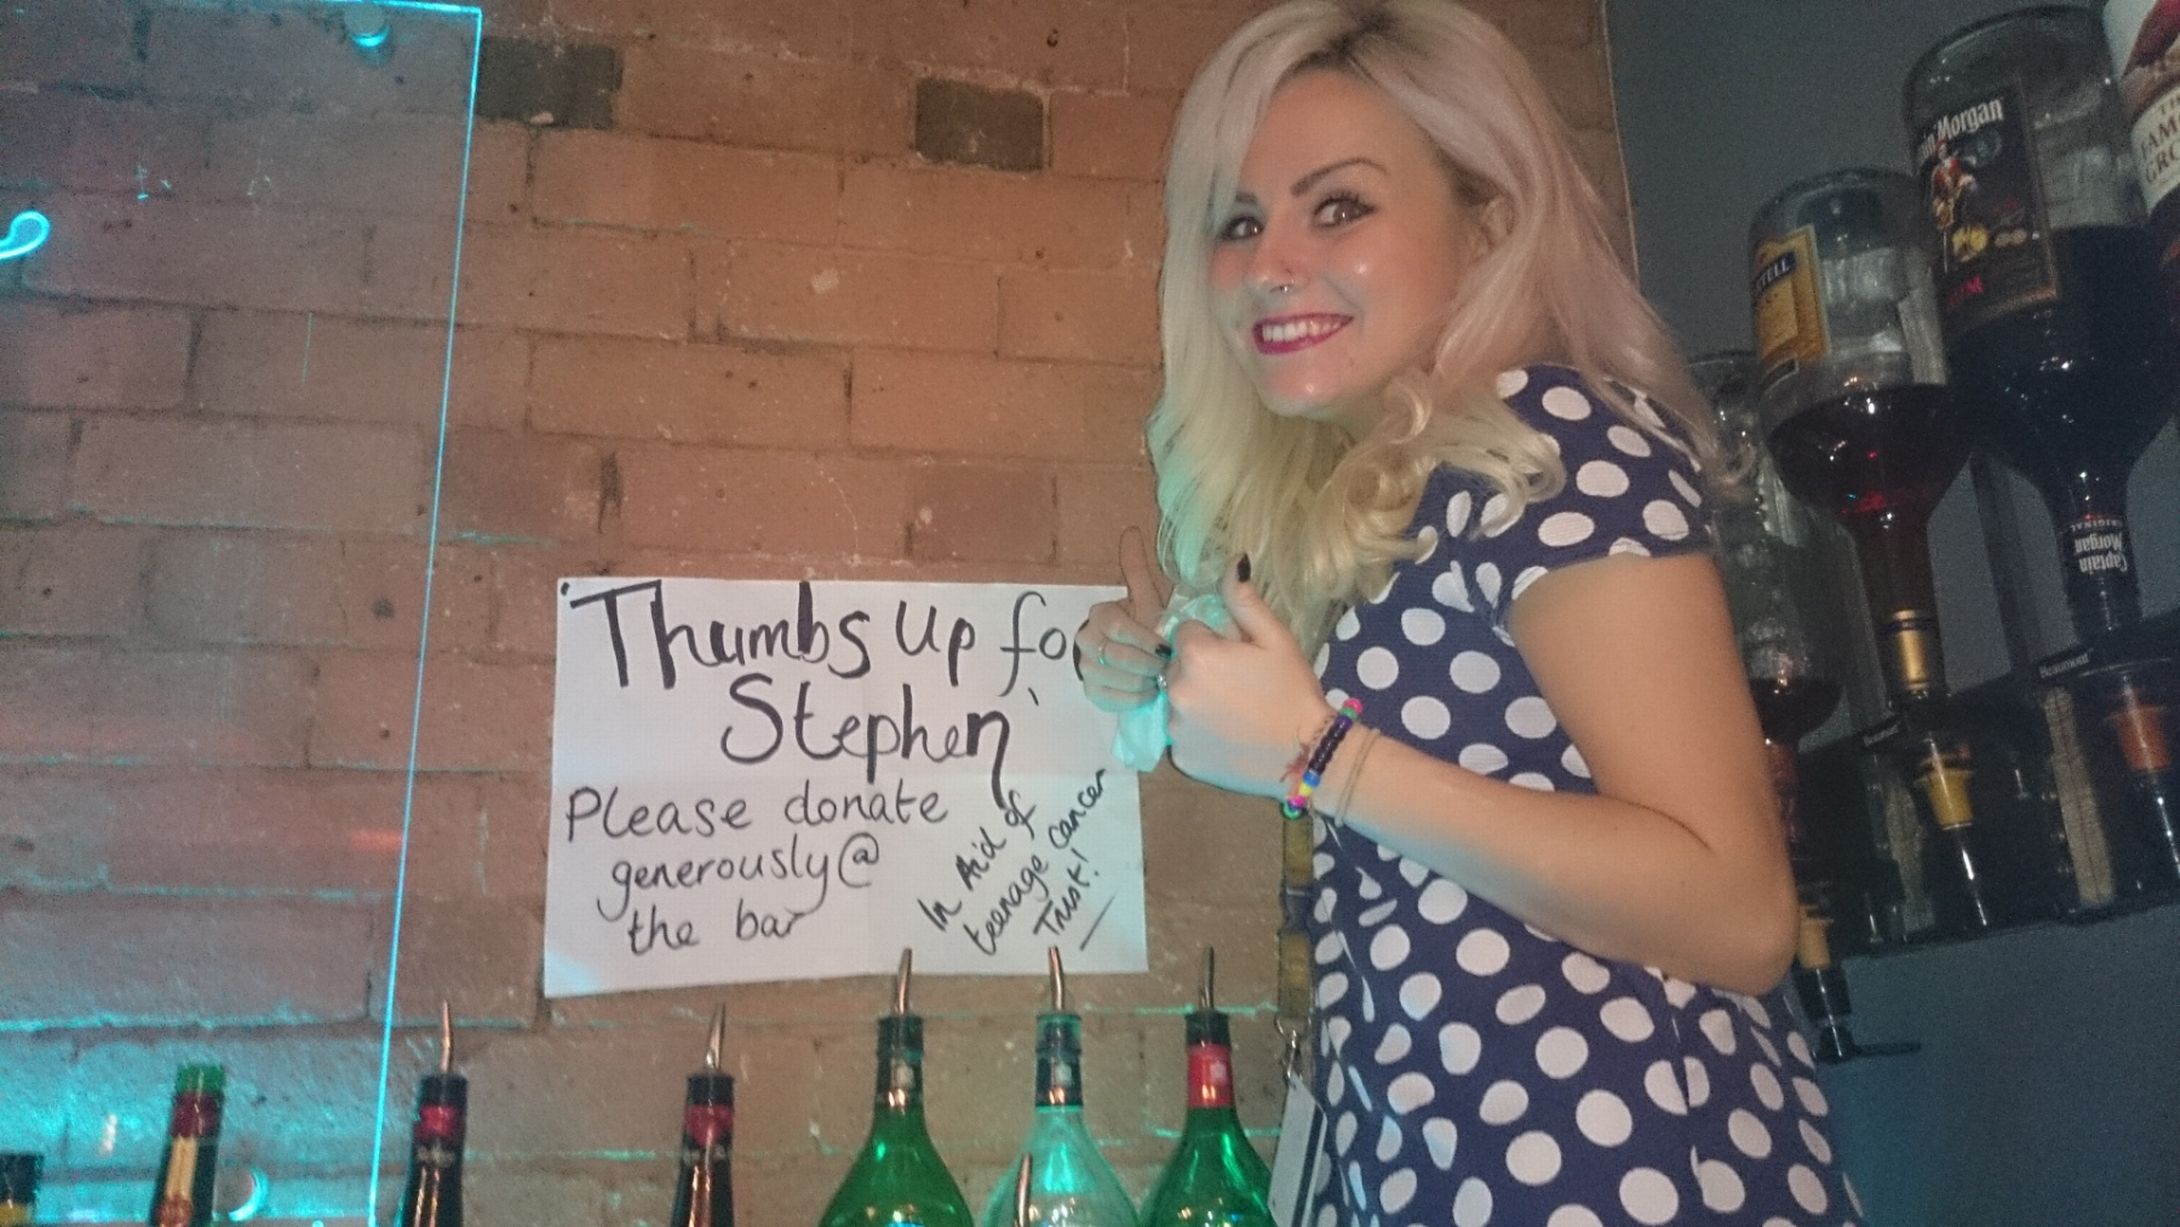 'Thumbs up for
Stephen'
Please donate
generously@
the bar
In Aid of
teenage cancer
Trust!
Morgan
RUM
ORIGINAL
Captain
Morgan
Beaumont